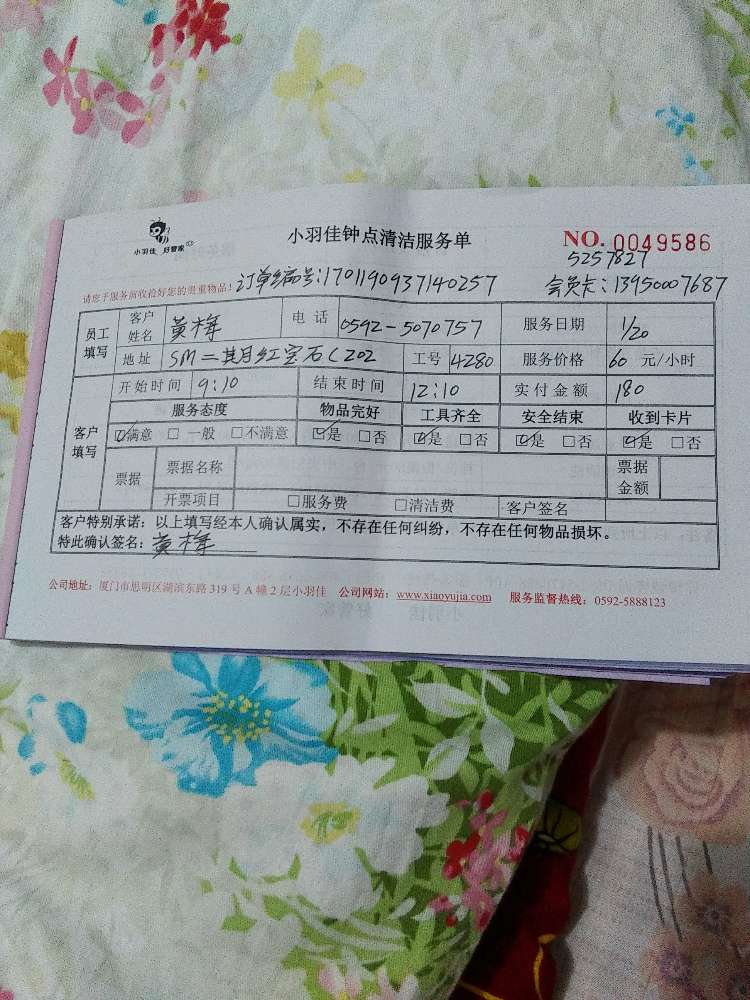 小羽佳 好管家
小羽佳钟点清洁服务单
NO. 0049586
5257827
请您于服务前收拾好您的贵重物品！订单编号：1701190937140257 会员卡：13950007687
员工填写 客户姓名 黄梅 电话 0592-5070757 服务日期 1/20
地址 SM二期红宝石C202 工号 4280 服务价格 60 元/小时
客户填写 开始时间 9:10 结束时间 12:10 实付金额 180
服务态度 物品完好 工具齐全 安全结束 收到卡片
☑满意 □一般 □不满意 ☑是 □否 ☑是 □否 ☑是 □否 ☑是 □否
票据 票据名称 票据金额
开票项目 □服务费 □清洁费 客户签名
客户特别承诺：以上填写经本人确认属实，不存在任何纠纷，不存在任何物品损坏。
特此确认签名：黄梅
公司地址：厦门市思明区湖滨东路 319 号 A 幢 2 层小羽佳 公司网站：www.xiaoyujia.com 服务监督热线：0592-5888123